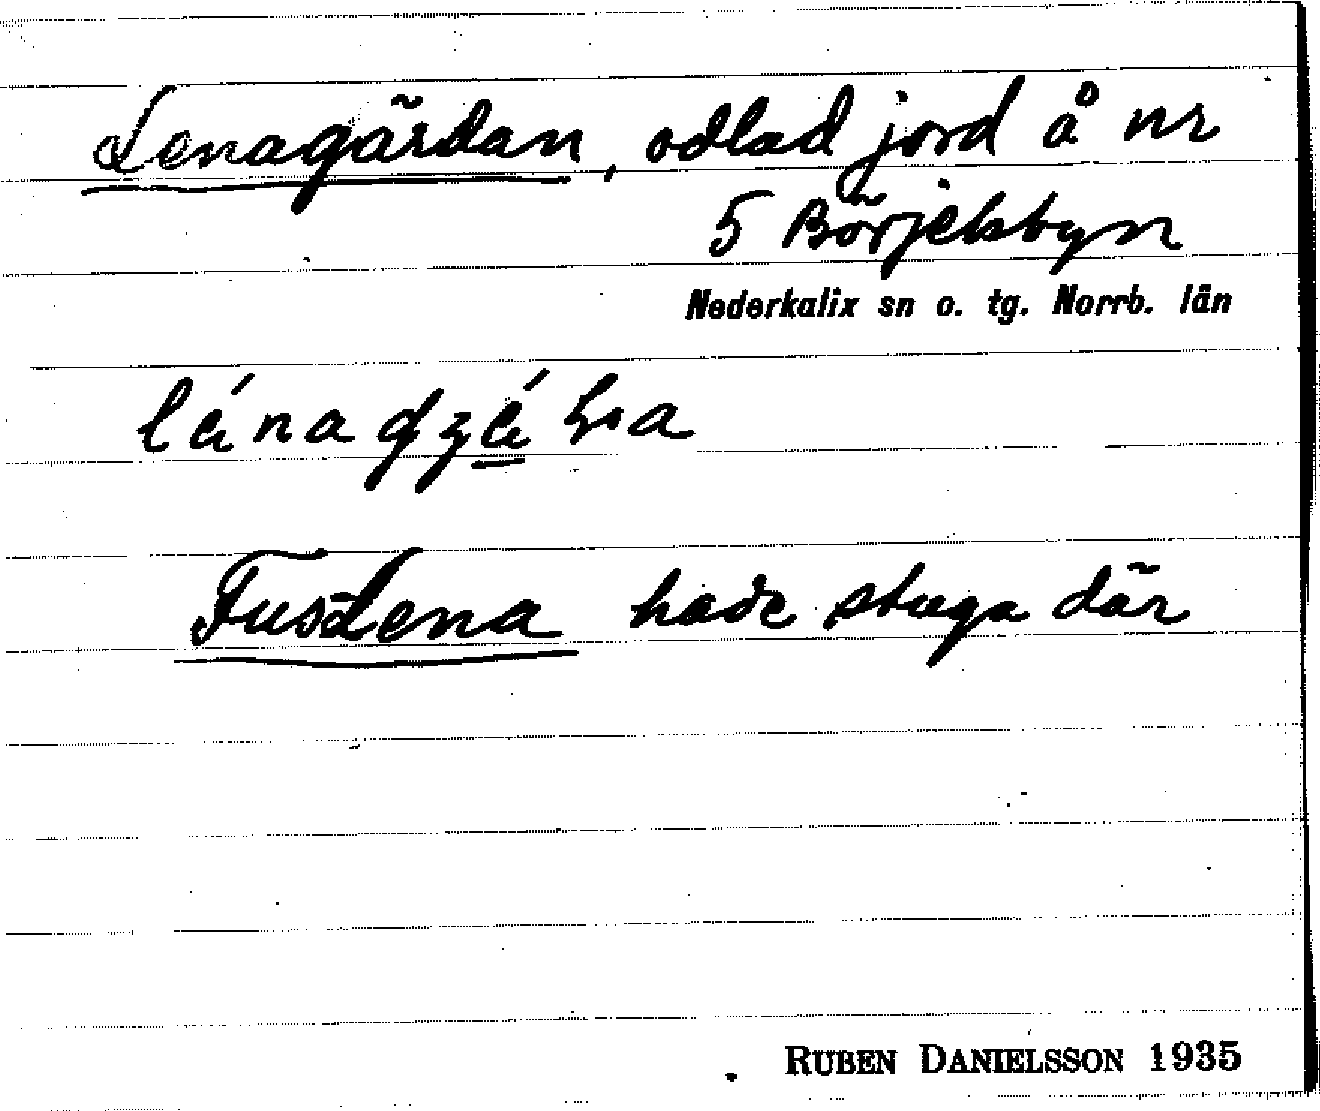 Lenagärdan, odlad jord å nr
5 Börjelsbyn
Nederkalix sn o. tg. Norrb. län
FusLena hade stuga där
RUBEN DANIELSSON 1935